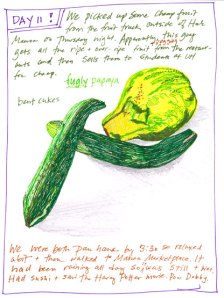 DAY 11!
We picked up some cheap fruit
from the fruit truck outside of Hale
Manoa on Thursday night. Apparently this guy
gets all the ripe + over ripe fruit from the
and then sells them to students at UH
for cheap.
fugly papaya
bent cukes
We were both home by 5:30 so relaxed
a bit + then walked to Manoa Marketplace. It
had been raining all day so was still + 
Had sushi + saw the Harry Potter movie.